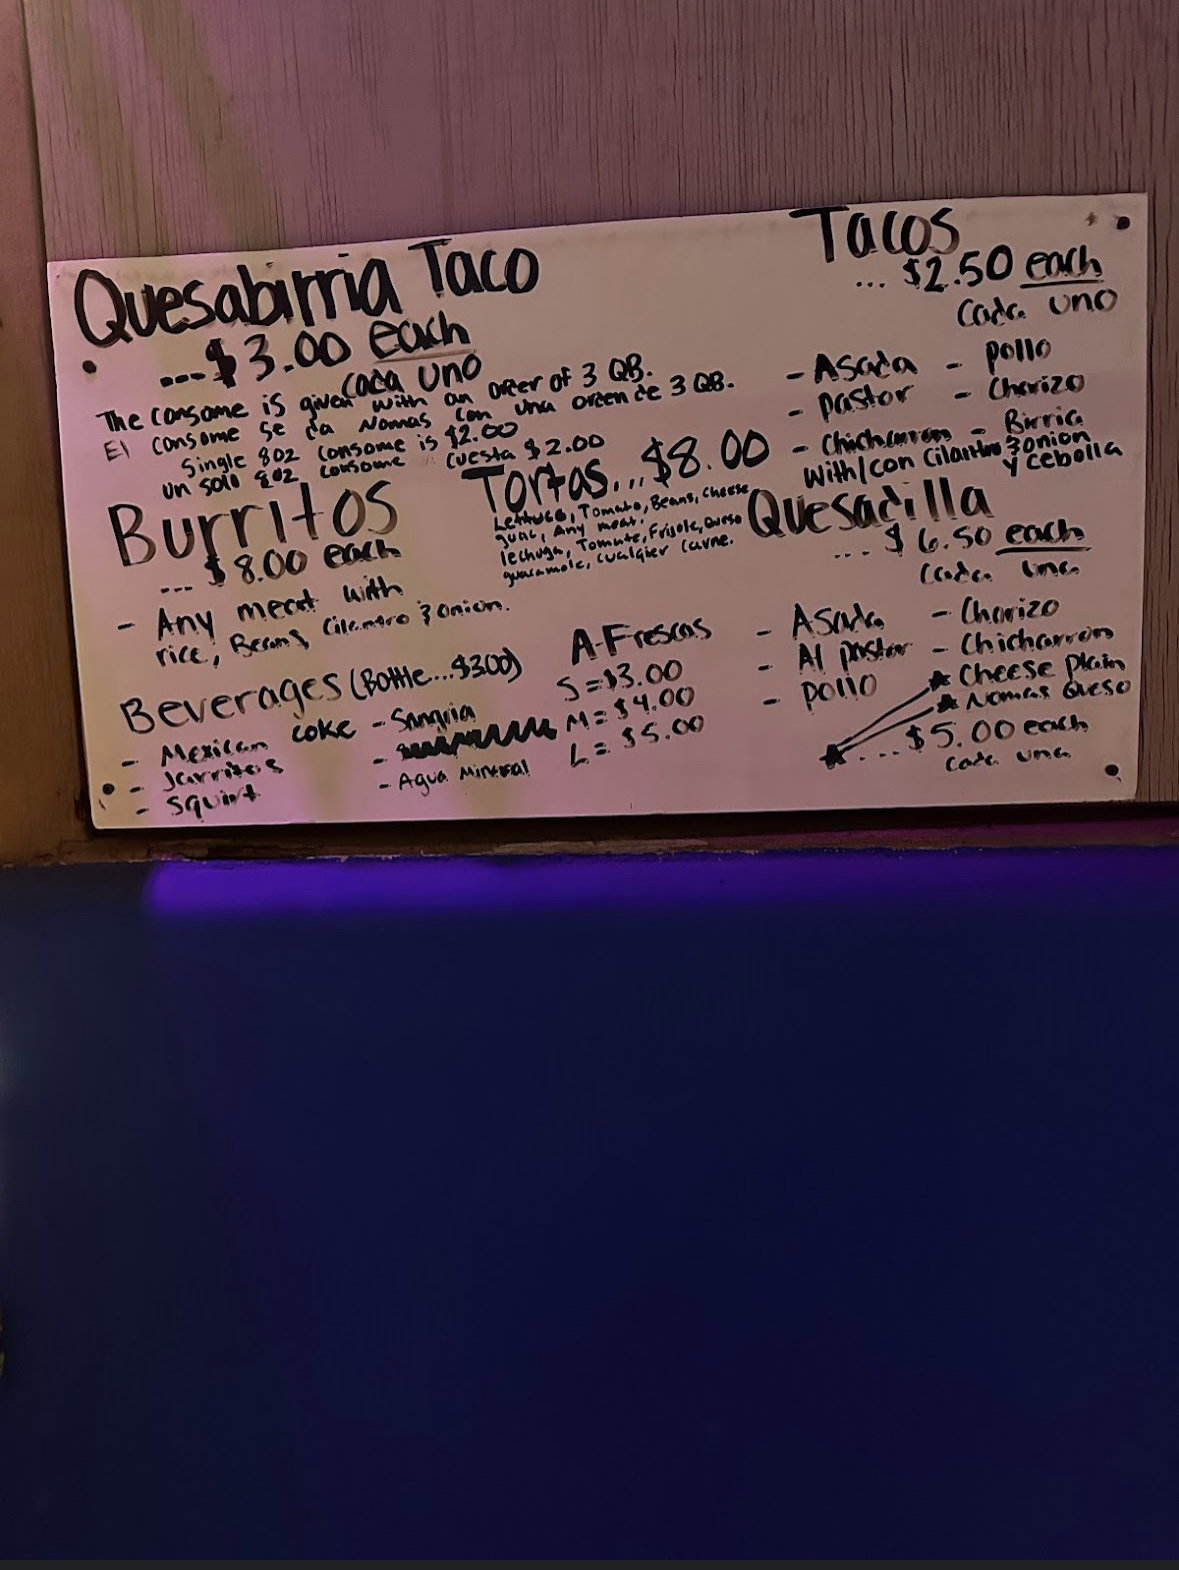 Quesabirria Taco
...$3.00 each
cada uno
The consome is given with an order of 3 QB.
El consome se da Nomas con una orden de 3 QB.
Single 8oz consome is $2.00
un solo 8oz consome cuesta $2.00
Burritos
... $8.00 each
- Any meat with
rice, Beans, Cilantro & onion.
Tortas...$8.00
Lettuce, Tomato, Beans, Cheese
guac, Any meat.
lechuga, Tomate, Frijole, Queso
guacamole, cualqier carne.
Beverages (Bottle...$3.00)
- Mexican coke
- Jarritos
- Squirt
- Sangria
-
- Agua Mineral
A-Frescas
S = $3.00
M = $4.00
L = $5.00
Tacos
... $2.50 each
cada uno
- Asada - pollo
- pastor - Chorizo
- Chicharron - Birria
With/con Cilantro & onion
y cebolla
Quesadilla
... $6.50 each
cada una
- Asada - Chorizo
- Al pastor - Chicharron
- pollo ★ Cheese plain
★ Nomas Queso
★ ...$5.00 each
cada una